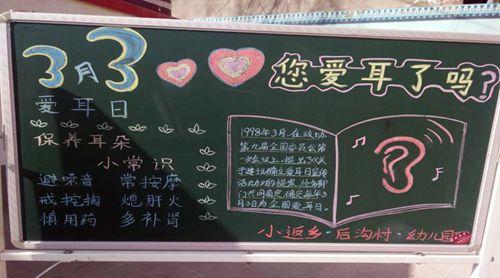 3月3 您爱耳了吗?
爱耳日
保养耳朵
小常识
避噪音 常按摩
戒挖掏 熄肝火
慎用药 多补肾
1998年3月在政协
第九届全国委员会第
一次会议上,提出了关
于建议确立爱耳日宣传
活动的提案,经多部
门共同商定,确定每年3
月3日为全国爱耳日。
小返乡·后沟村·幼儿园